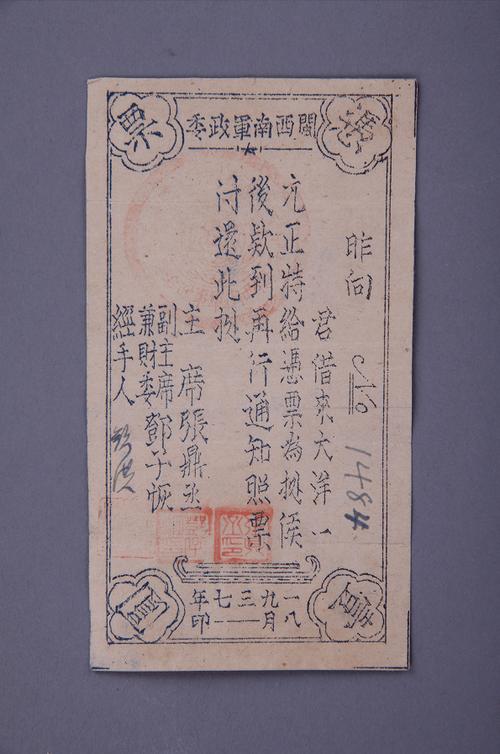 閩西南軍政委
憑票
昨向
No 1484
君借來大洋一
元正特給憑票為据俟
後款到再行通知照票
付還此据
主席張鼎丞
副主席鄧子恢
兼財委
經手人
一九三七年
八月一一印